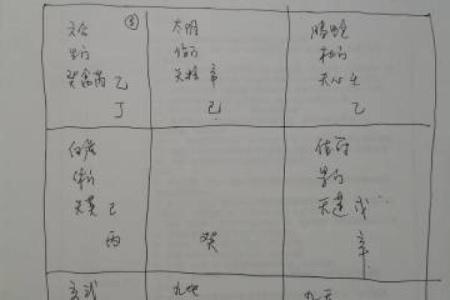 六合
生门
癸禽芮 乙
丁
太阴
伤门
天柱 辛
己
腾蛇
杜门
天心 壬
乙
白虎
休门
天英 己
丙
癸
值符
景门
天蓬 戊
辛
玄武
九地
九天